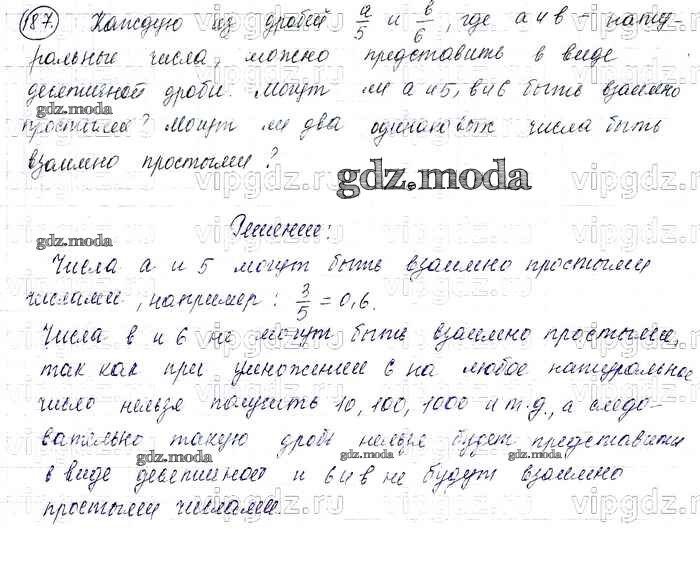 187. Каждую из дробей a/5 и b/6, где a и b - нату-
ральные числа, можно представить в виде
десятичной дроби. Могут ли a и 5, b и 6 быть взаимно
простыми? Могут ли два одинаковых числа быть
взаимно простыми?
Решение:
Числа a и 5 могут быть взаимно простыми
числами, например: 3/5 = 0,6.
Числа b и 6 не могут быть взаимно простыми,
так как при умножении 6 на любое натуральное
число нельзя получить 10, 100, 1000 и т.д., а следо-
вательно такую дробь нельзя будет представить
в виде десятичной и 6 и b не будут взаимно
простыми числами.
gdz.moda
vipgdz.ru